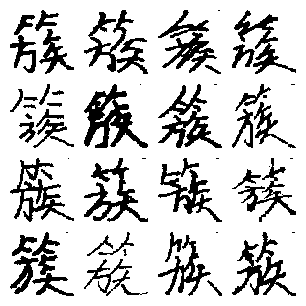 簇簇簇簇
簇簇簇簇
簇簇簇簇
簇簇簇簇